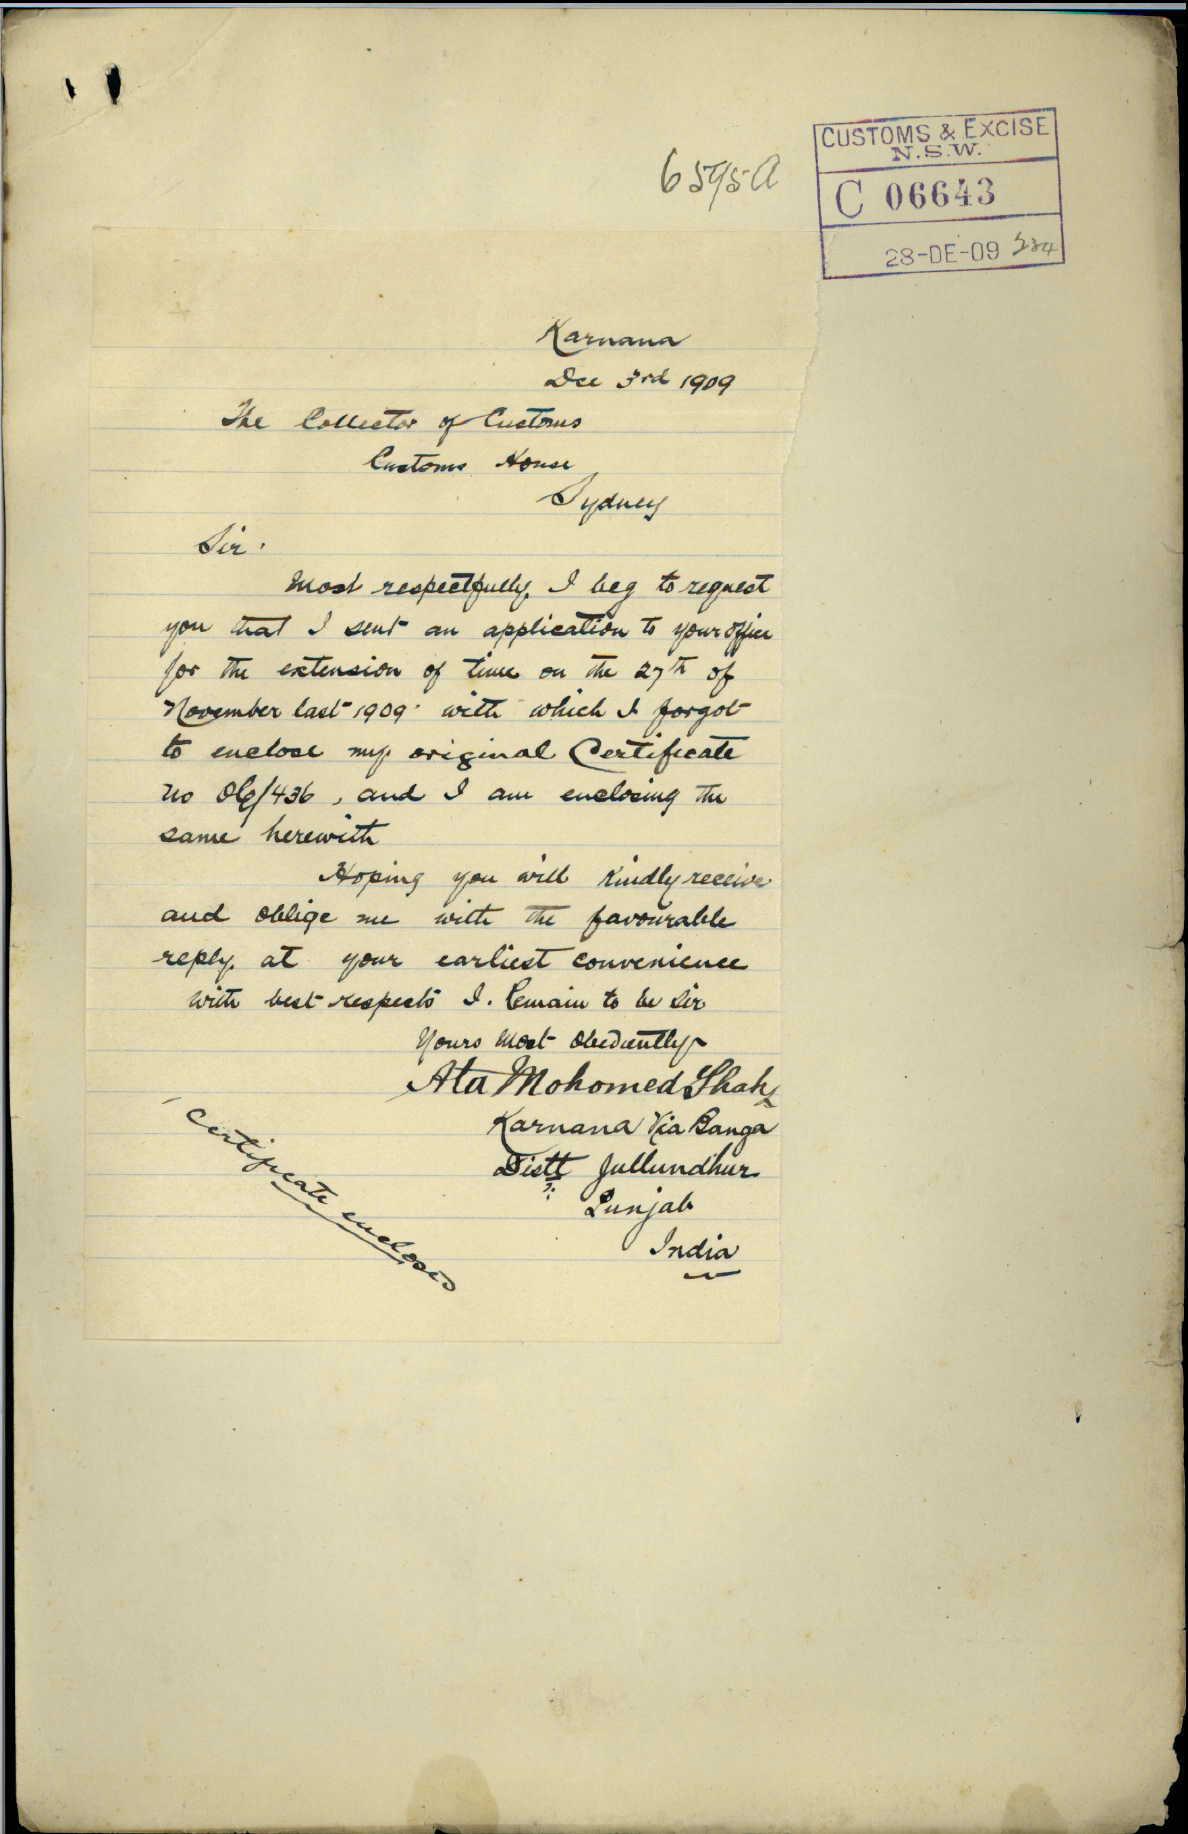 CUSTOMS & EXCISE
N.S.W.
C 06643
28-DE-09
Karnana
Dec 3rd 1909
The Collector of Customs
Customs House
Sydney
Sir.
Most respectfully I beg to request
you that I sent an application to your office
for the extension of time on the 27th of
November last 1909 with which I forgot
to enclose my original Certificate
no 06/436, and I am enclosing the
same herewith
Hoping you will kindly receive
and oblige me with the favourable
reply at your earliest convenience
with best respects I. Remain to be Sir
Yours Most Obediently
Ata Mohomed Shah
Karnana Via Banga
Distt Jullundhur
Punjab
India
Certificate encloses